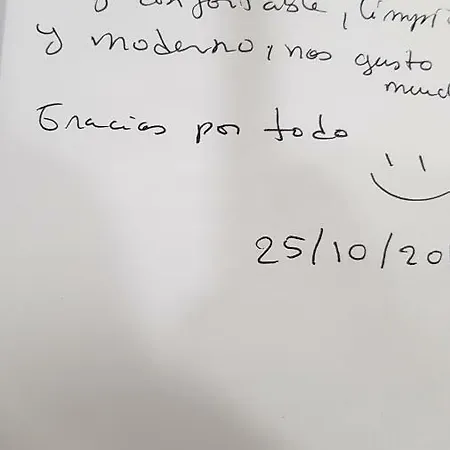 y confortable, limpi
y moderno, nos gusto
much
Gracias por todo
25/10/20